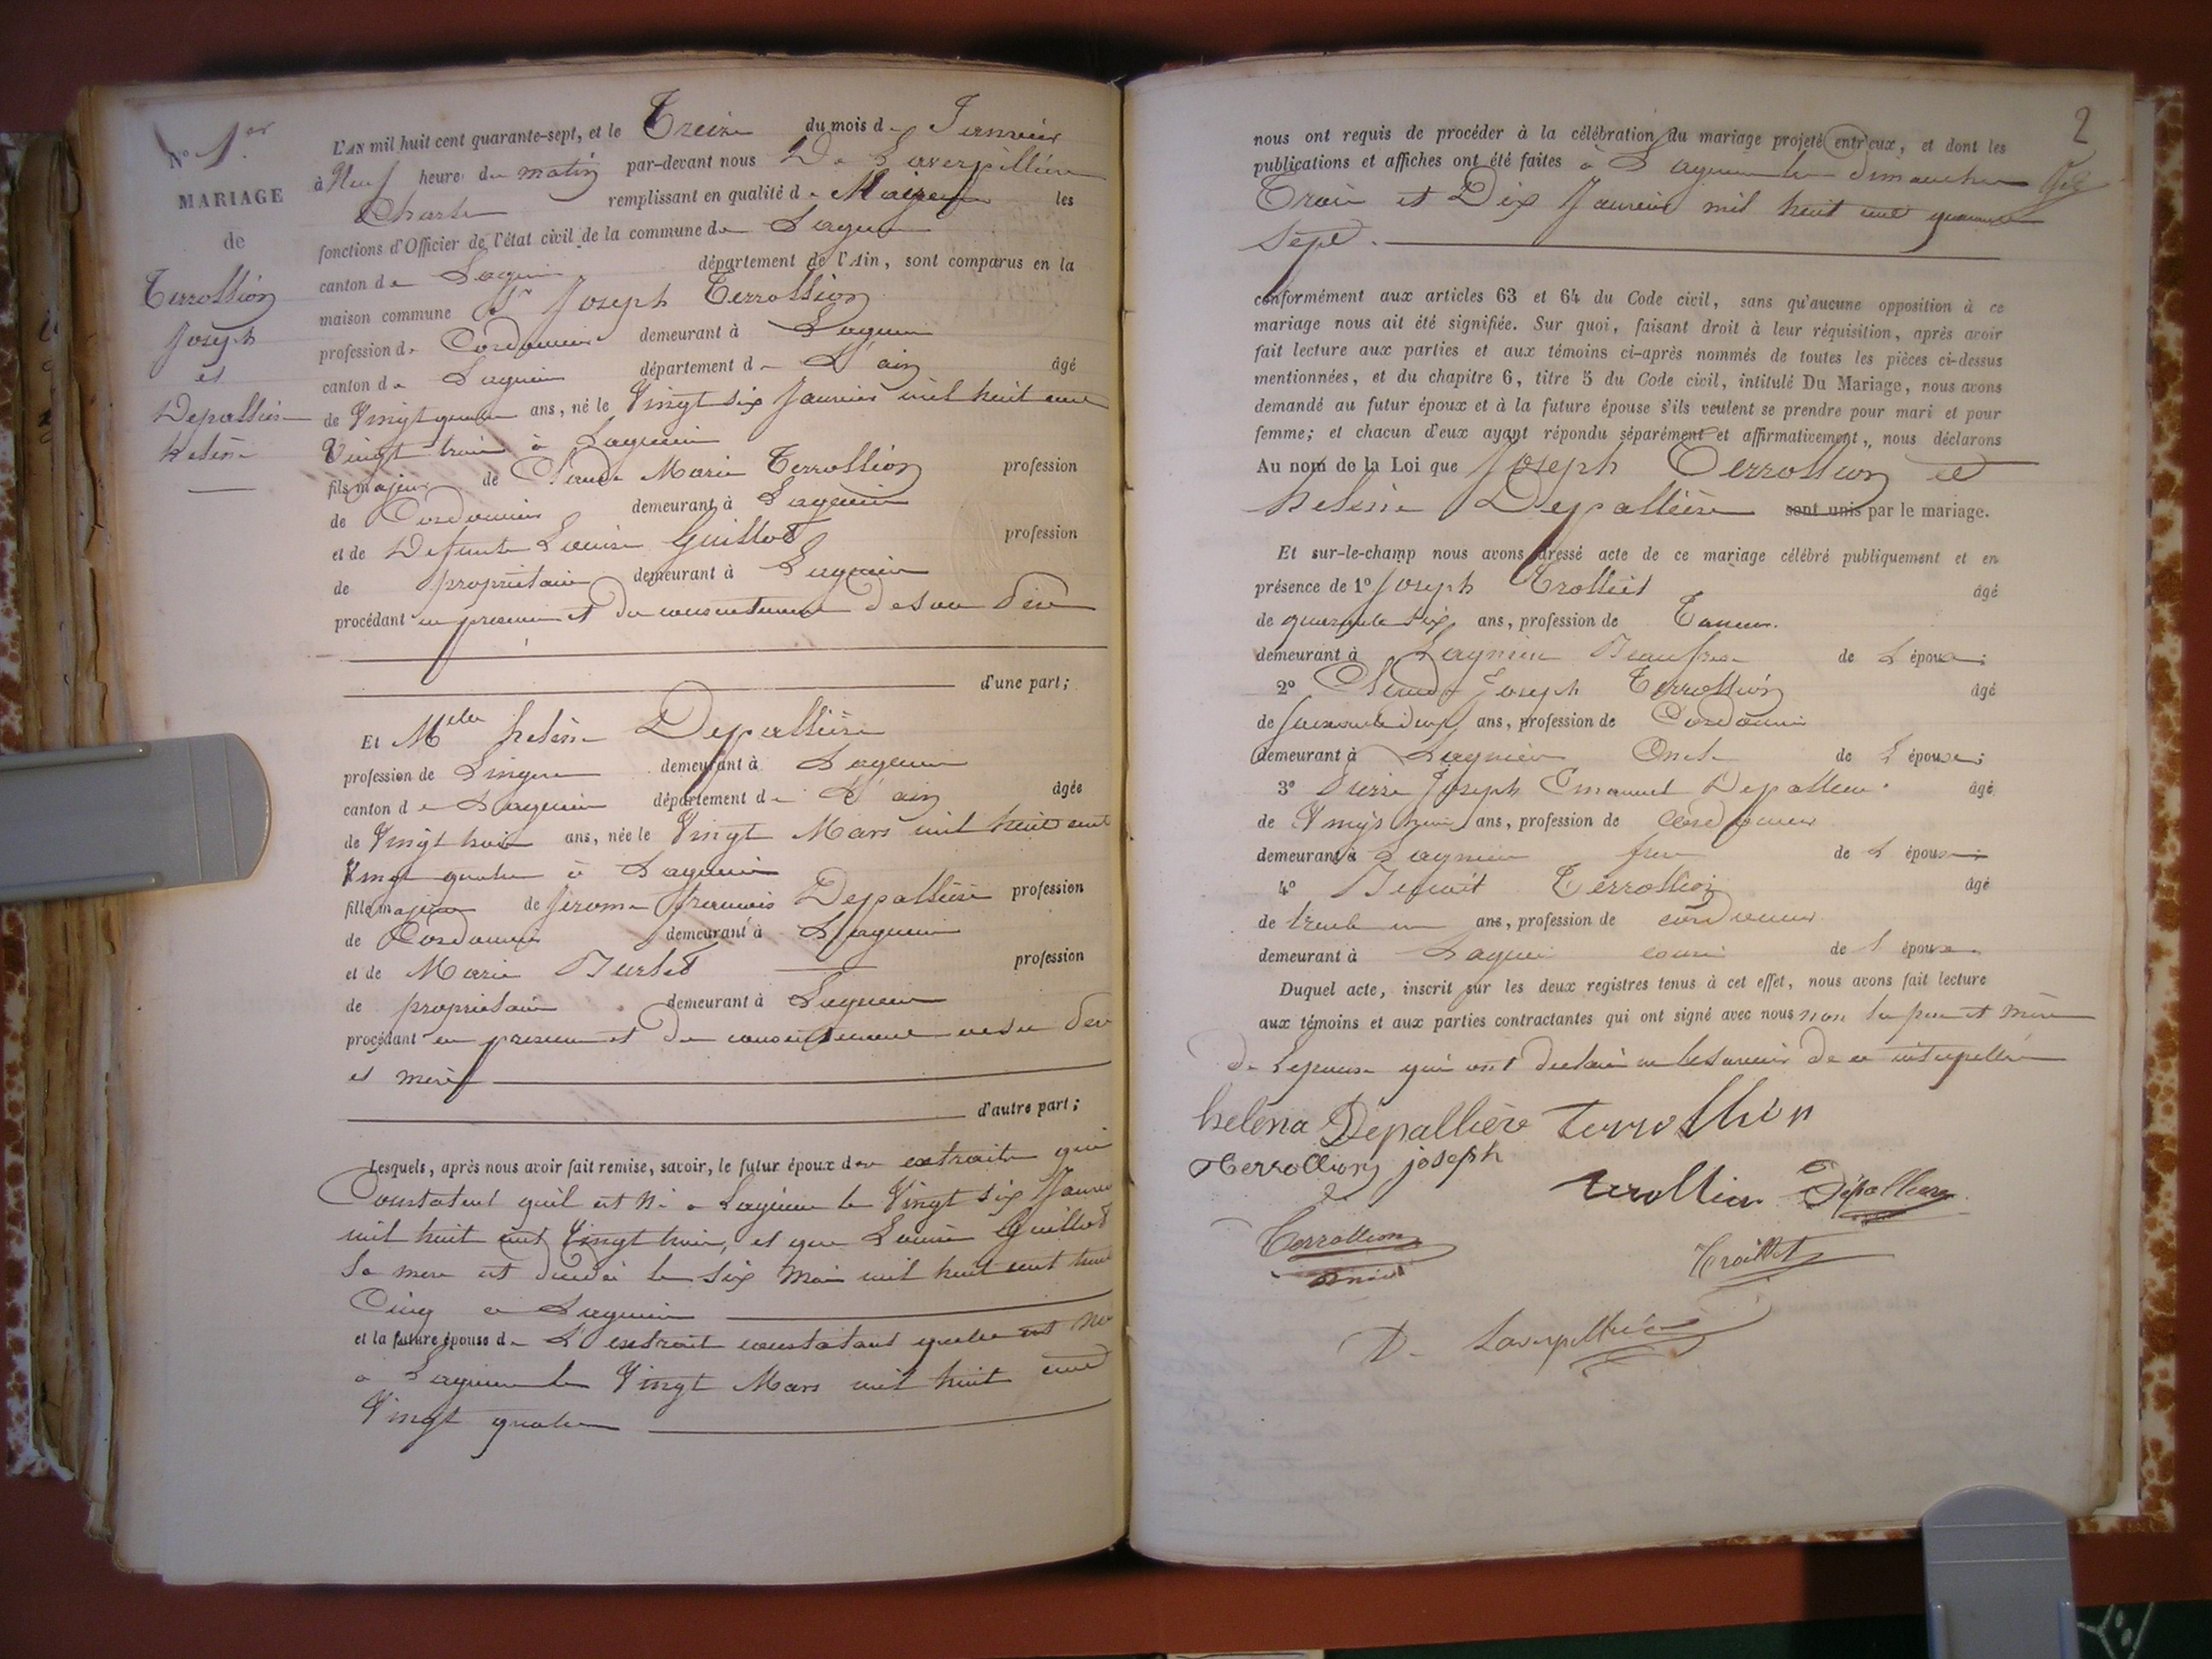 N° 1er
MARIAGE
de
Terrollion
Joseph
et
Depallière
helène
L'AN mil huit cent quarante-sept, et le Treize du mois de Janvier
à Neuf heure du matin par-devant nous De Laverpillière
Charles remplissant en qualité de Maire les
fonctions d'Officier de l'état civil de la commune de Lagnieu
canton de Lagnieu département de l'Ain, sont comparus en la
maison commune Sr Joseph Terrollion
profession de Cordonnier demeurant à Lagnieu
canton de Lagnieu département de L'ain âgé
de Vingt quatre ans, né le Vingt six Janvier mil huit cent
Vingt trois à Lagnieu
fils majeur de Claude Marie Terrollion profession
de Cordonnier demeurant à Lagnieu
et de Defunte Louise Guillot profession
de propriétaire demeurant à Lagnieu
procédant en presence et du consentement de son Père
d'une part;
Et Melle helène Depallière
profession de Lingere demeurant à Lagnieu
canton de Lagnieu département de L'ain âgée
de Vingt trois ans, née le Vingt Mars mil huit cent
Vingt quatre à Lagnieu
fille majeure de Jerome francois Depallière profession
de Cordonnier demeurant à Lagnieu
et de Marie Burlet profession
de propriétaire demeurant à Lagnieu
procédant en presence et du consentement de ses Père
et mère
d'autre part;
Lesquels, après nous avoir fait remise, savoir, le futur époux des extraits qui
Constatent quil est Né à Lagnieu le Vingt six Janvier
mil huit cent Vingt trois, et que Louise Guillot
Sa mere est décédée le Six Mai mil huit cent trente
Cinq à Lagnieu
et la future épouse de L'extrait constatant quelle est née
à Lagnieu le Vingt Mars mil huit cent
Vingt quatre
2
nous ont requis de procéder à la célébration du mariage projeté entr'eux, et dont les
publications et affiches ont été faites à Lagnieu les dimanches
Trois et Dix Janvier mil huit cent quarante
Sept.
conformément aux articles 63 et 64 du Code civil, sans qu'aucune opposition à ce
mariage nous ait été signifiée. Sur quoi, faisant droit à leur réquisition, après avoir
fait lecture aux parties et aux témoins ci-après nommés de toutes les pièces ci-dessus
mentionnées, et du chapitre 6, titre 5 du Code civil, intitulé Du Mariage, nous avons
demandé au futur époux et à la future épouse s'ils veulent se prendre pour mari et pour
femme; et chacun d'eux ayant répondu séparément et affirmativement, nous déclarons
Au nom de la Loi que Joseph Terrollion et
helène Depallière sont unis par le mariage.
Et sur-le-champ nous avons dressé acte de ce mariage célébré publiquement et en
présence de 1° Joseph Trolliet âgé
de quarante six ans, profession de Taneur.
demeurant à Lagnieu Beaufrere de L'époux;
2° Claude Joseph Terrollion âgé
de soixante deux ans, profession de Cordonnier
demeurant à Lagnieu Oncle de L'époux;
3° Pierre Joseph Emanuel Depalliere âgé
de Vingt ans, profession de Cordonnier
demeurant à Lagnieu frere de L'épouse;
4° Benoit Terrollion âgé
de trente un ans, profession de cordonnier
demeurant à Lagnieu cousin de l'époux.
Duquel acte, inscrit sur les deux registres tenus à cet effet, nous avons fait lecture
aux témoins et aux parties contractantes qui ont signé avec nous non les père et mère
de Lepouse qui ont declaré ne le savoir de ce interpellé
helèna Dépallière terrollion
Terrollion joseph
terollion Dépalliere
Terrollion
Trolliet
D. Laverpillière